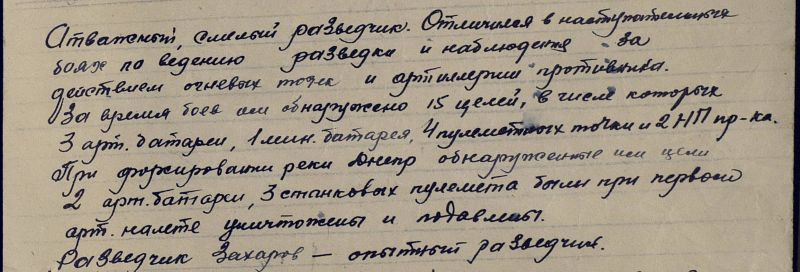 Отважный, смелый разведчик. Отличился в наступательных
боях по ведению разведки и наблюдения за
действием огневых точек и артиллерии противника.
За время боев им обнаружено 15 целей, в числе которых
3 арт. батареи, 1 мин. батарея, 4 пулеметных точки и 2 НП пр-ка.
При форсировании реки Днепр обнаруженные им цели
2 арт. батареи, 3 станковых пулемета были при первом
арт. налете уничтожены и подавлены.
Разведчик Захаров — опытный разведчик.